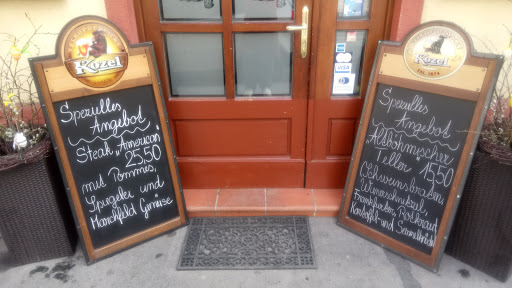 Kozel
Spezielles
Angebot
Steak "American"
25,50
mit Pommes,
Spiegelei und
Marchfeld Gemüse
VISA
Kozel
EST. 1874
Spezielles
Angebot
Altböhmischer
Teller 15,50
Schweinsbraten,
Frankfurter, Rotkraut,
Kartoffel- und Semmelknödl